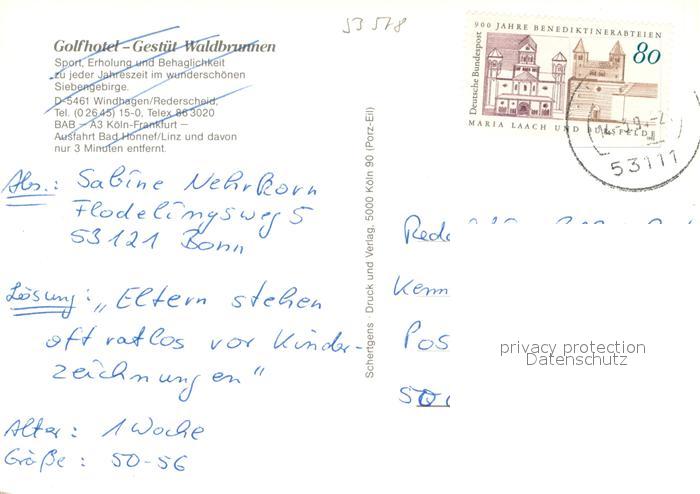 53 578
Golfhotel – Gestüt Waldbrunnen
Sport, Erholung und Behaglichkeit
zu jeder Jahreszeit im wunderschönen
Siebengebirge.
D-5461 Windhagen/Rederscheid,
Tel. (02645) 15-0, Telex 863020
BAB – A3 Köln-Frankfurt –
Ausfahrt Bad Honnef/Linz und davon
nur 3 Minuten entfernt.
Abs.: Sabine Nehrkorn
Flodelingsweg 5
53121 Bonn
Lösung: „Eltern stehen
oft ratlos vor Kinder-
zeichnungen"
Alter: 1 Woche
Größe: 50-56
Schertgens · Druck und Verlag, 5000 Köln 90 (Porz-Eil)
900 JAHRE BENEDIKTINERABTEIEN
80
Deutsche Bundespost
MARIA LAACH UND BURSFELDE
53111
Reda
Kenn
Pos
privacy protection
Datenschutz